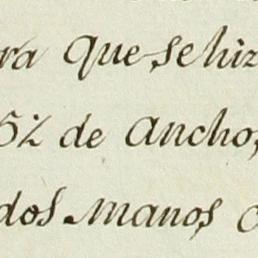 ra que se hiz
5½ de ancho,
dos manos c